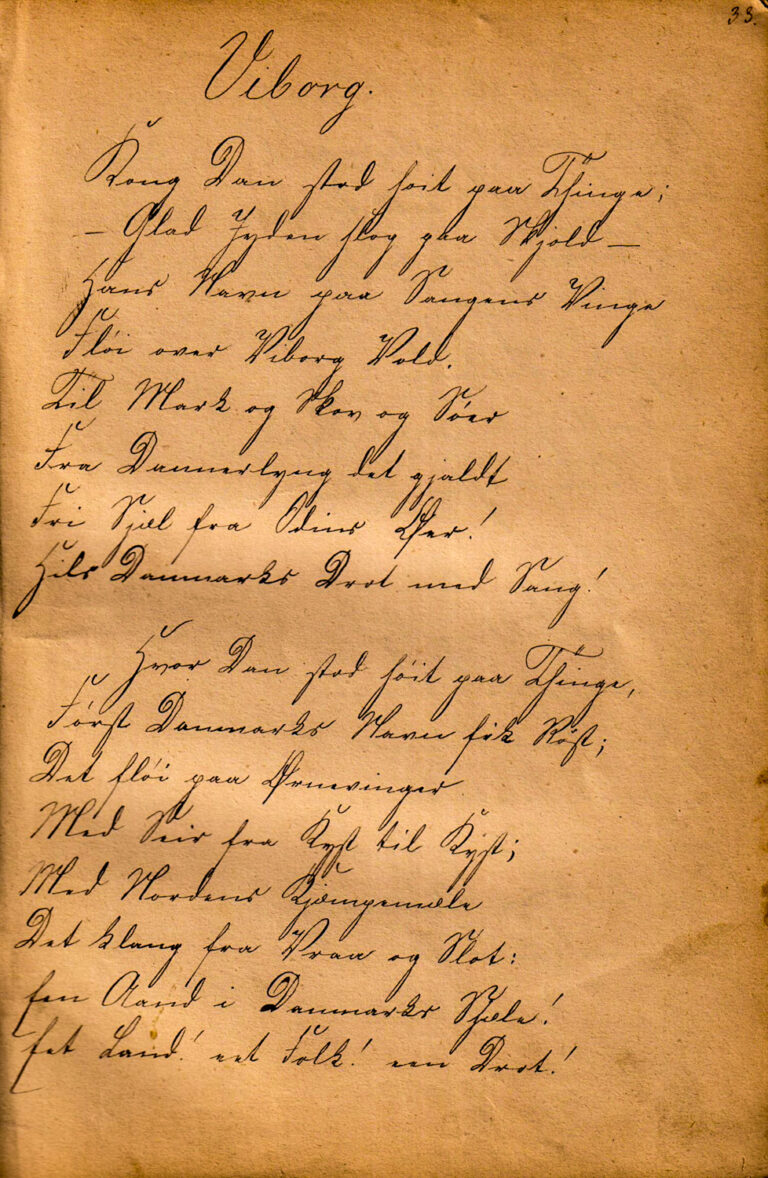 33.
Viborg.
Kong Dan stod høit paa Thinge;
– Glad Jyden slog paa Skjold –
Hans Navn paa Sangens Vinge
Fløi over Viborg Vold.
Til Mark og Skov og Søer
Fra Dannerlyng det gjaldt
Fri Sjæl fra Odins Øer!
Hils Danmarks Drot med Sang!
Hvor Dan stod høit paa Thinge,
Først Danmarks Navn fik Røst;
Det fløi paa Ørnevinger
Med Seir fra Kyst til Kyst;
Med Nordens Kjæmpemæle
Det klang fra Vraa og Slot:
Een Aand i Danmarks Sjæle!
Eet Land! eet Folk! een Drot!